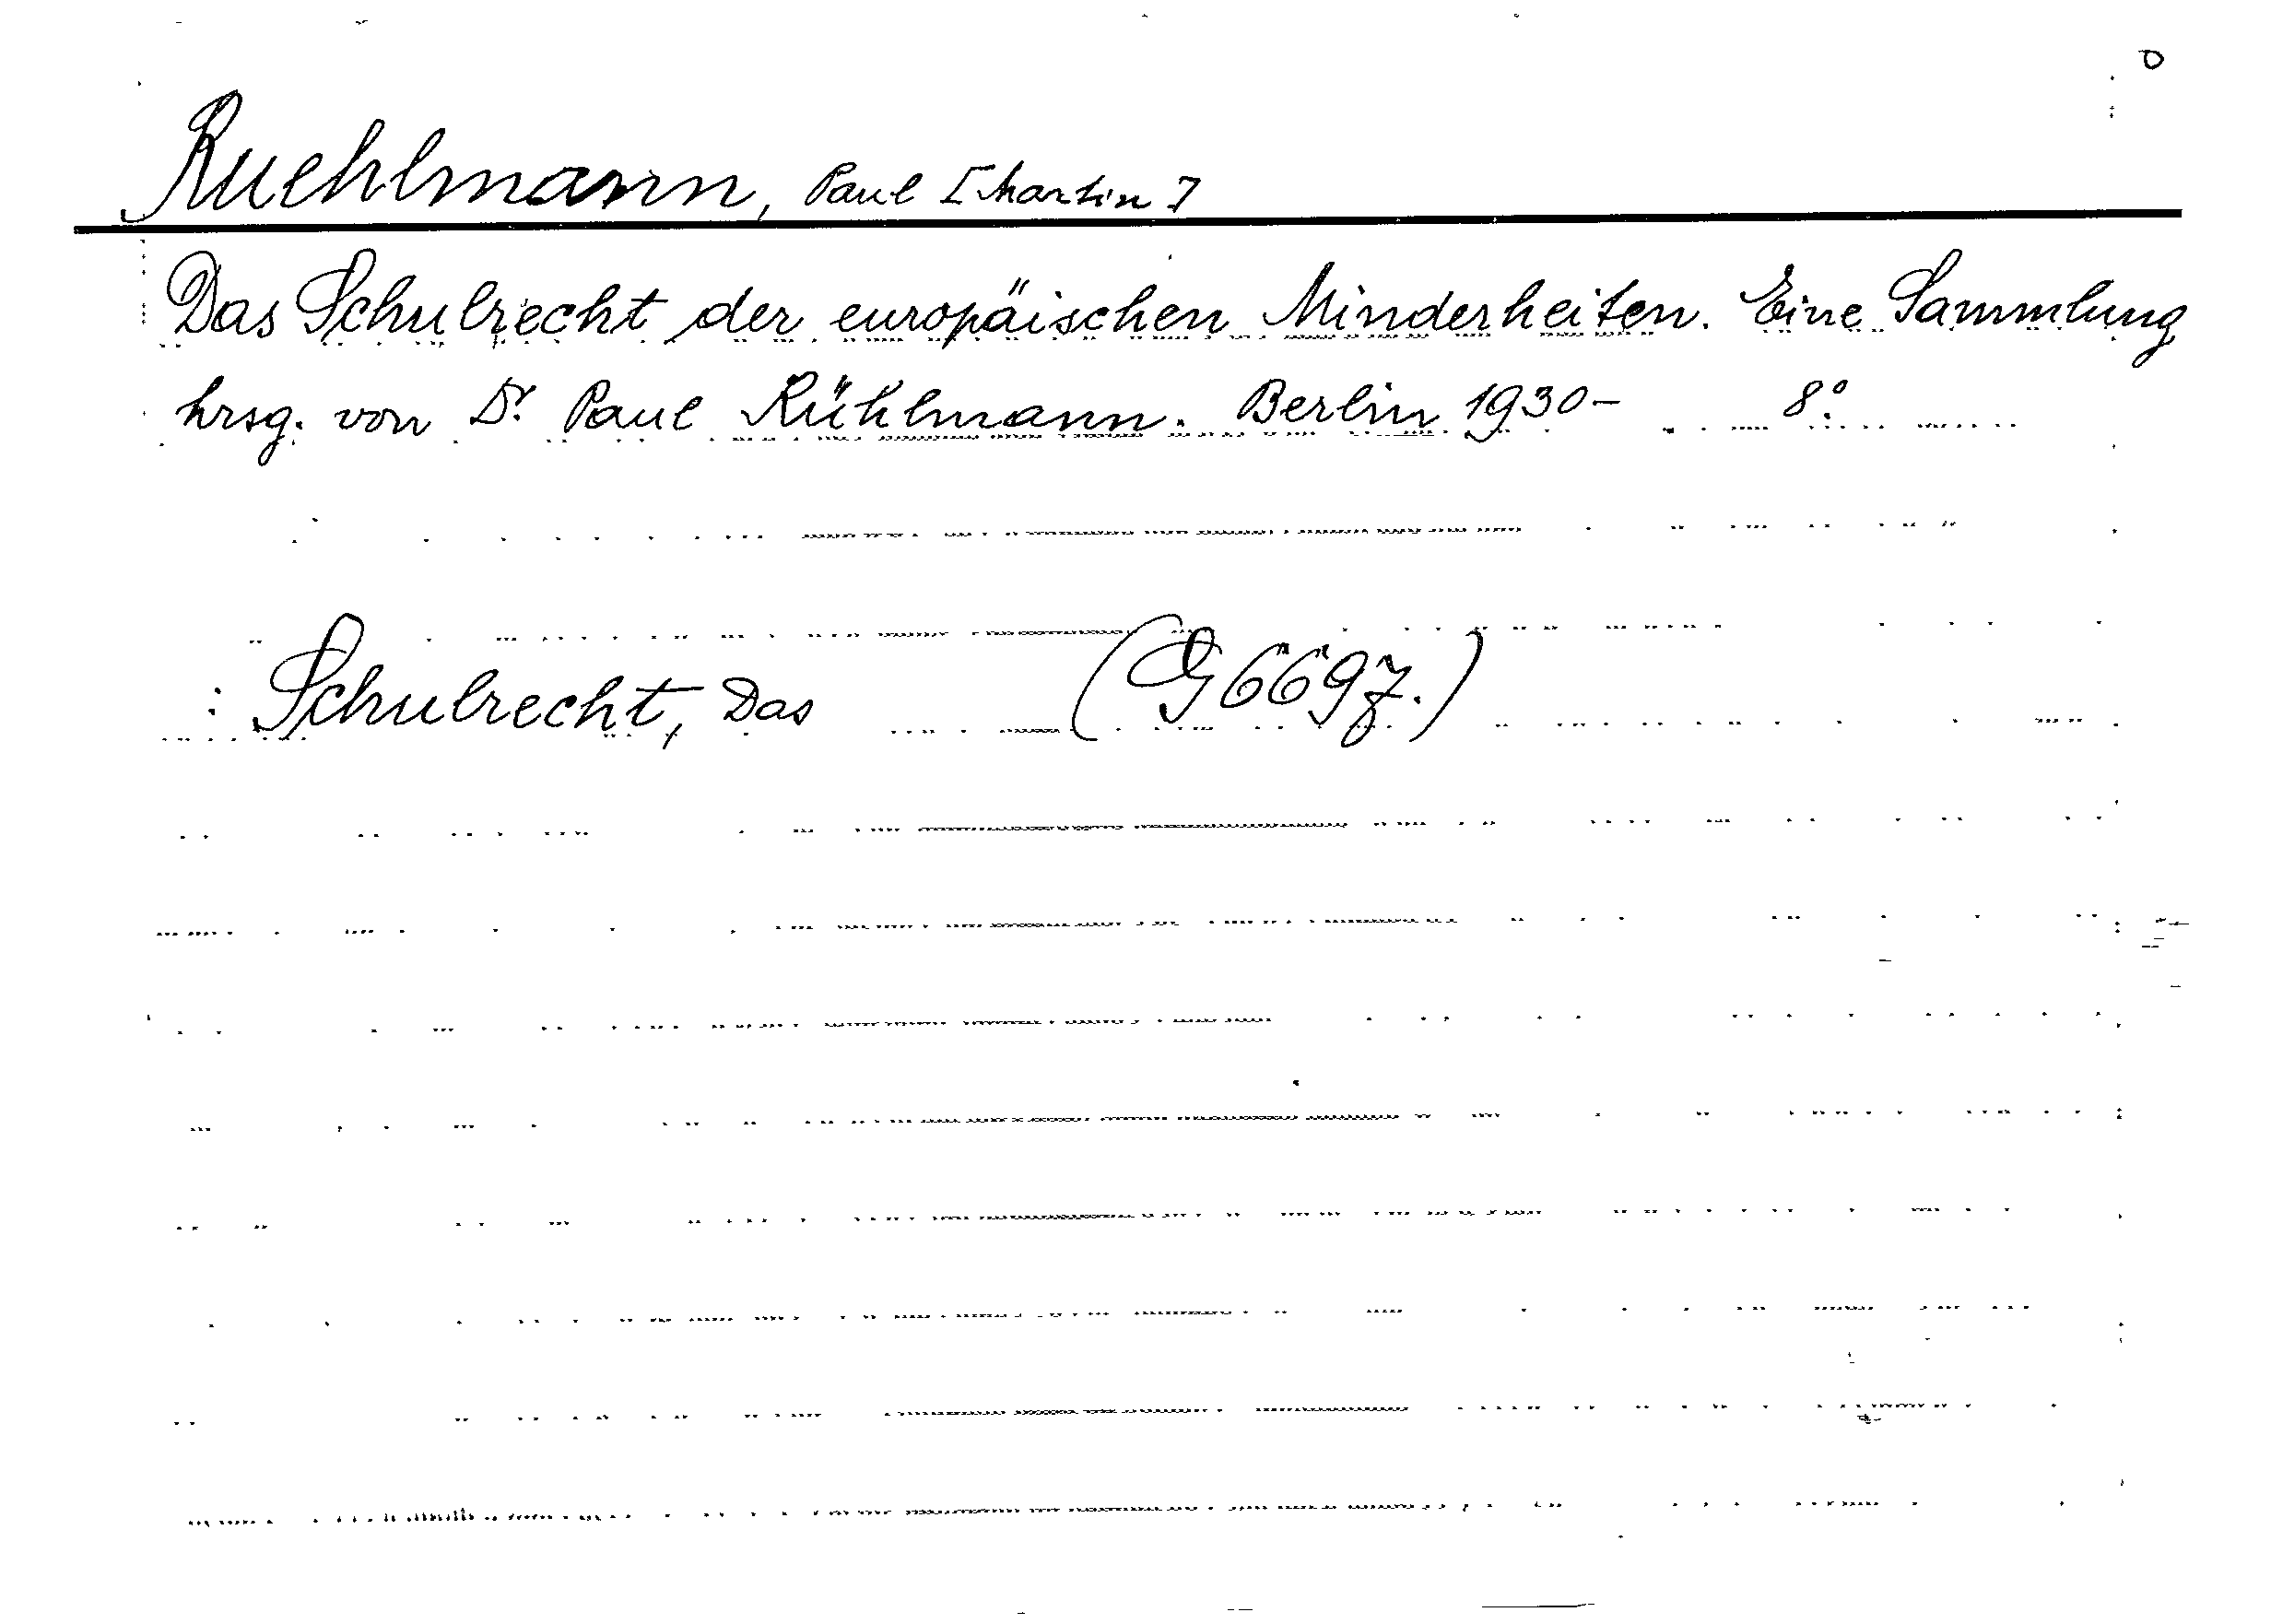 Ruehlmann, Paul [Martin]
Das Schulrecht der europäischen Minderheiten. Eine Sammlung
hrsg. von Dr. Paul Rühlmann. Berlin 1930- 8°.
: Schulrecht, Das (G 669z.)